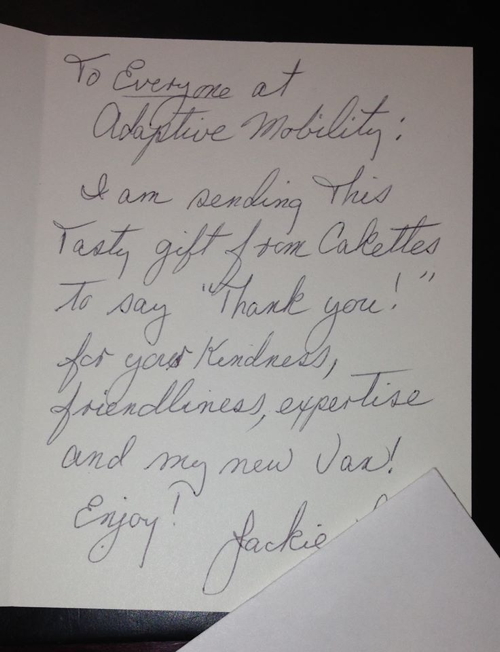 To Everyone at
Adaptive Mobility:
I am sending This
Tasty gift from Cakettes
to say "Thank you!"
for your Kindness,
friendliness, expertise
and my new Van!
Enjoy!
Jackie